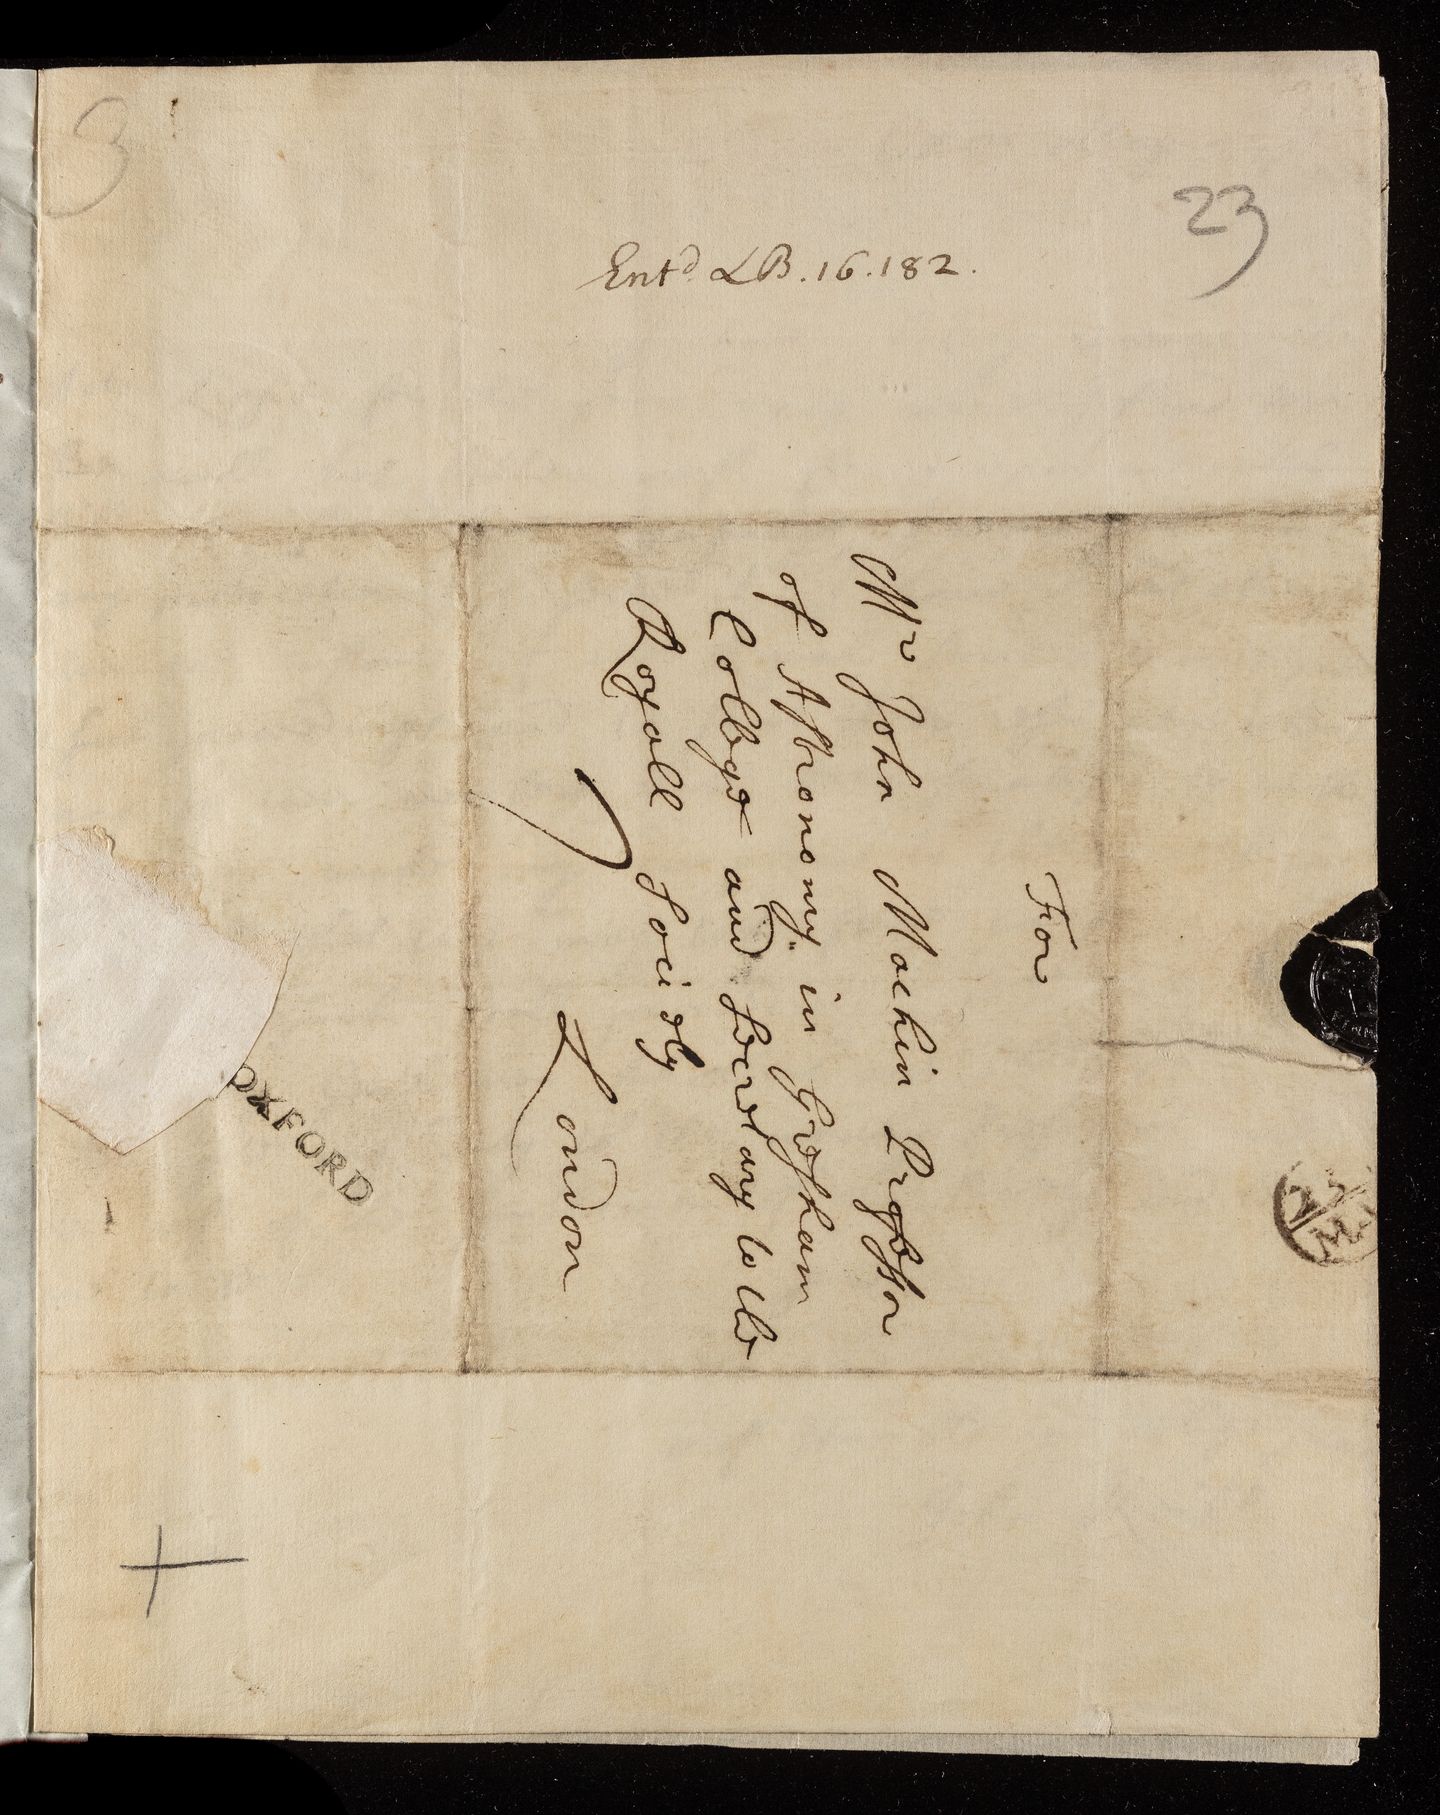 3
23
Entd LB. 16. 182.
For
Mr John Machin Professor
of Astronomy in Gresham
College and Secretary to the
Royall Society
London
OXFORD